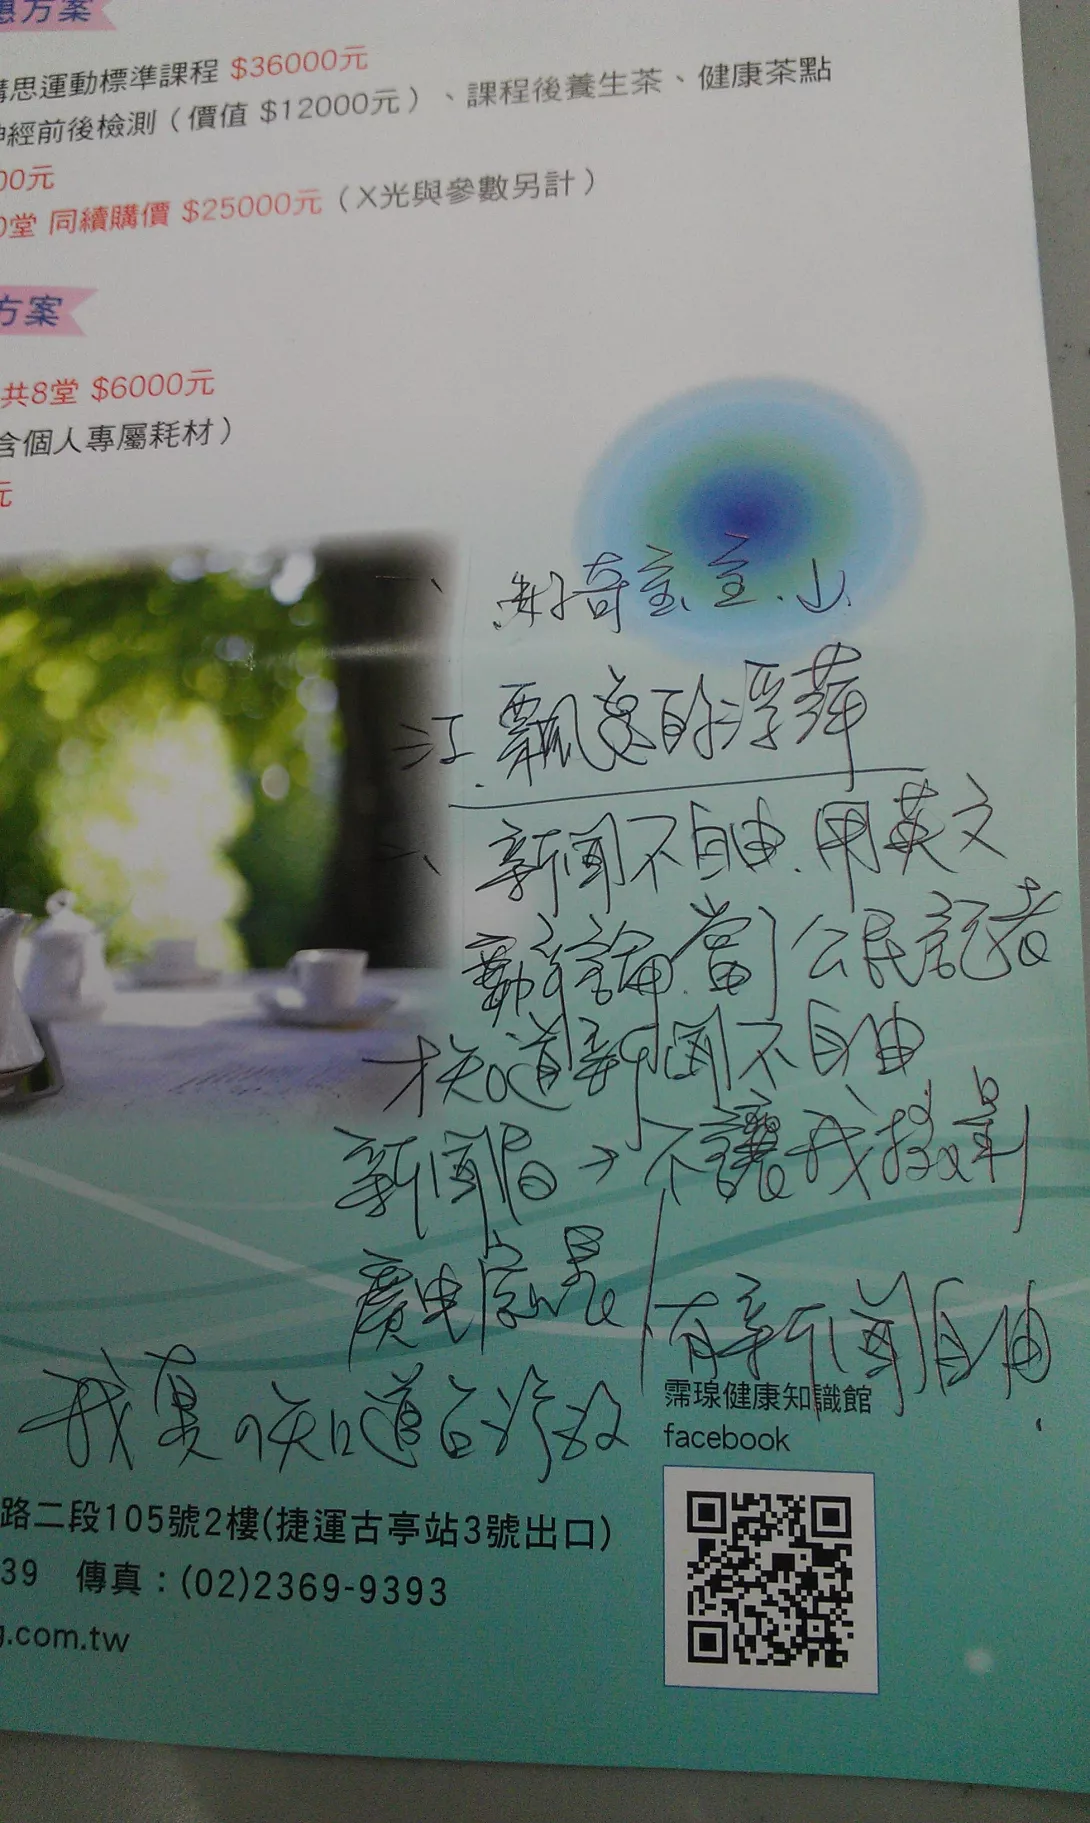 惠方案
構思運動標準課程 $36000元
神經前後檢測（價值 $12000元）、課程後養生茶、健康茶點
00元
0堂 同續購價 $25000元（X光與參數另計）
方案
共8堂 $6000元
含個人專屬耗材）
元
好奇
的浮萍
新聞不自由.用英文
論.當了公民記者
才知道新聞不自由
新聞局→不讓我攝影
廣電
有新聞自由.
我真的知道
霈瑔健康知識館
facebook
路二段105號2樓(捷運古亭站3號出口)
39 傳真：(02)2369-9393
g.com.tw